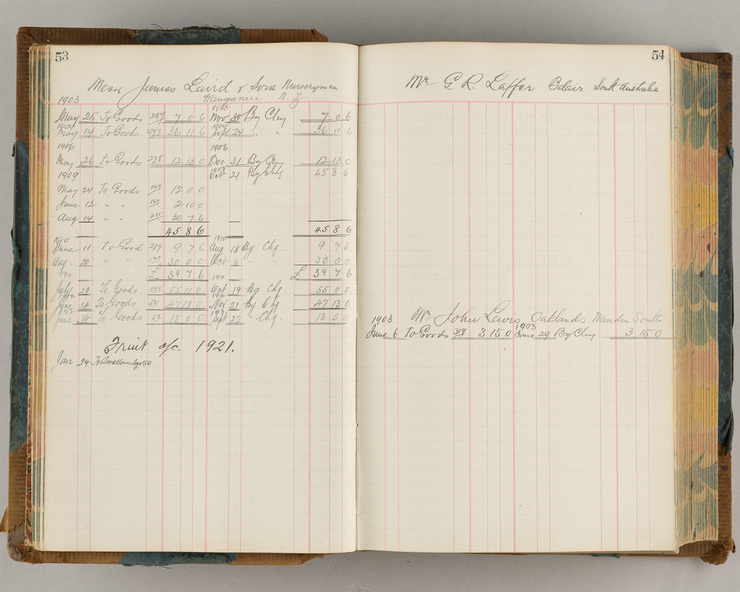 53
Messrs James Laird & Sons Nurserymen
Wanganui N.Z.
1903
May 25 To Goods 7 0 6 Nov 30 By Chq 7 0 6
May 14 To Goods 36 11 6 Sept 24 " " 36 11 6
1908 1908
May 26 to Goods 278 12 13 0 Dec 31 By Chq 12 13 0
1909 Oct 21 By Chq 45 8 6
May 24 To Goods 12 11 0
June 12 " " 2 10 0
Aug 14 " " 30 7 6
45 8 6 45 8 6
1910 1910
June 11 to Goods 9 7 6 Aug 18 By Chq 9 7 6
Aug 20 " " 30 0 0 Oct 6 " 30 0 0
1911 £ 39 7 6 1911 39 7 6
July 19 To Goods 55 11 0 Oct 19 By Chq 55 11 0
June 18 To Goods 47 13 0 Nov 21 By Chq 47 13 0
June 16 To Goods 13 0 0 Sept 22 " Chq. 13 0 0
Fruit a/c. 1921.
Jan 24
54
Mr G R Laffer Belair South Australia
1903 Mr John Lewis Oaklands South
June 6 To Goods 319 3 15 0 1903 June 29 By Chq 3 15 0